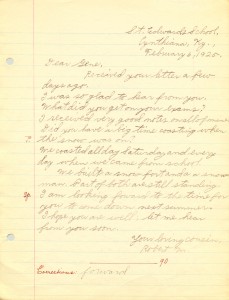 St. Edwards School,
Cynthiana, Ky.,
February 6, 1920.
Dear Gene,
Received your letter a few
days ago.
I was so glad to hear from you.
What did you get on your exams?
I received very good notes on all of mine.
Did you have a big time coasting when
the snow was on?
We coasted all day Saturday and every
day when we came from school.
We built a snow fort and a snow
man. Part of both are still standing.
I am looking forward to the time for
you to come down next summer.
I hope you are well. Let us hear
from you soon.
Your loving cousin
Robert
90
Corrections forward